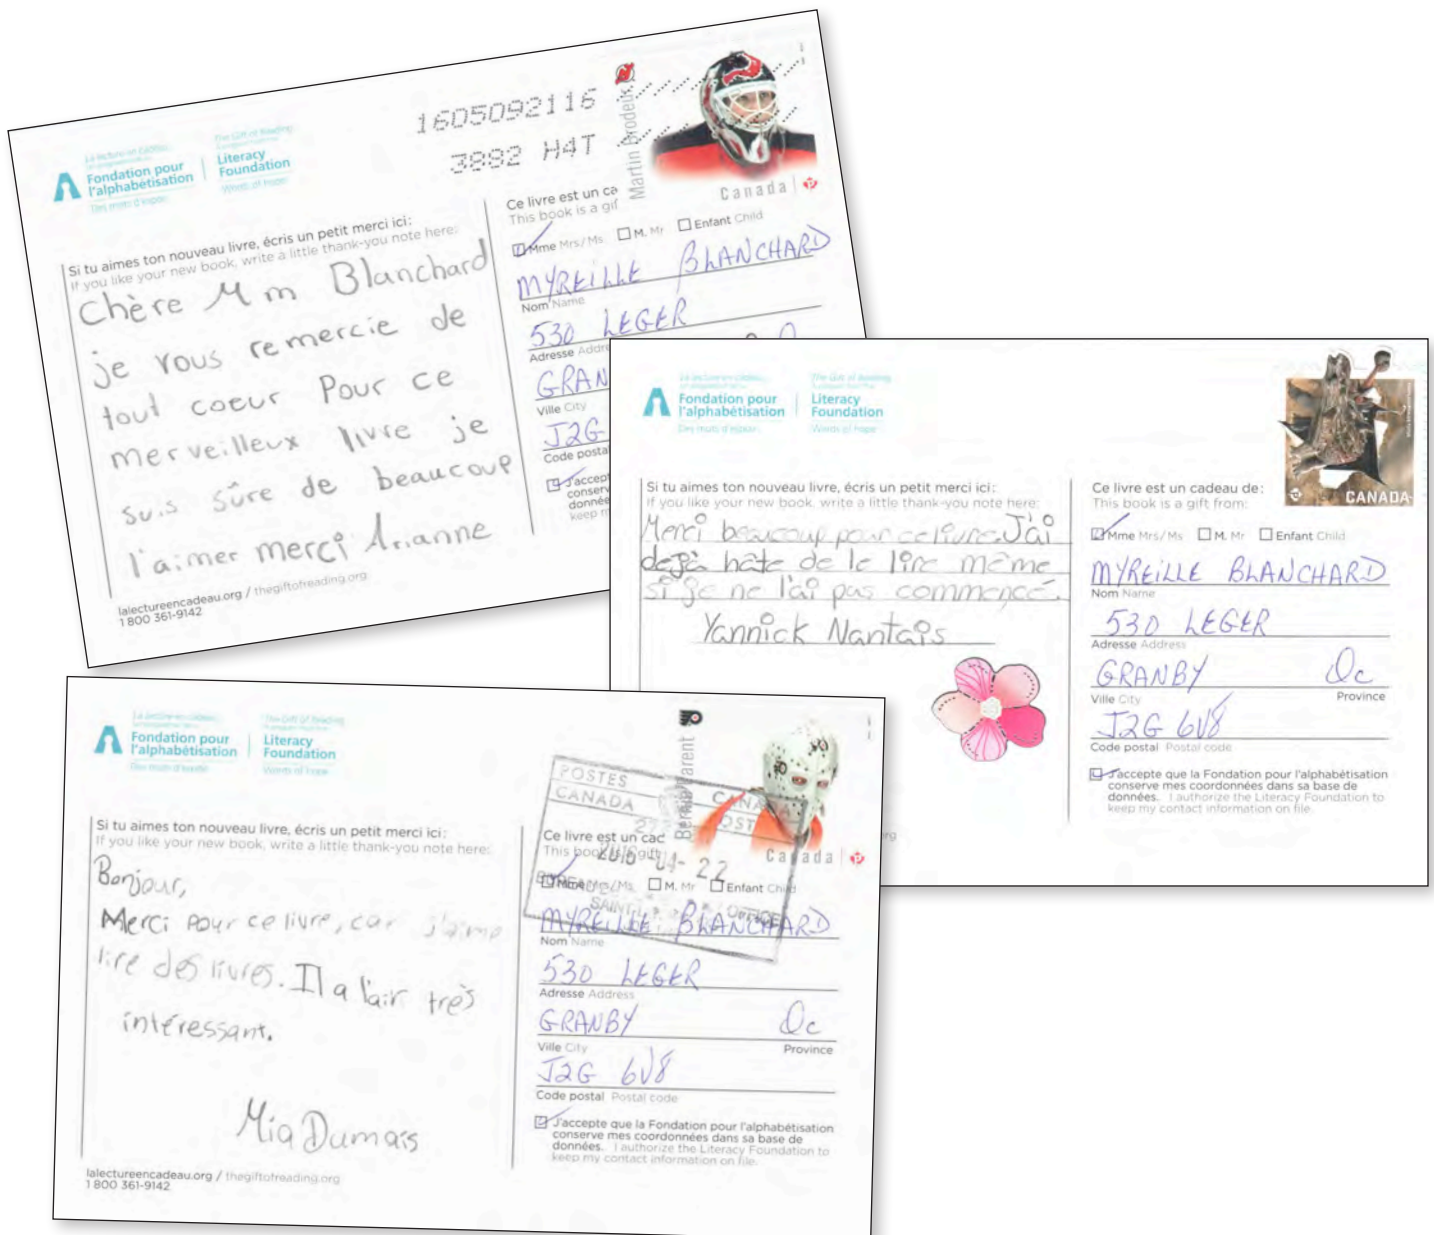 La lecture en cadeau
Fondation pour
l'alphabétisation
Des mots d'espoir
The Gift of Reading
Literacy
Foundation
Words of hope
1605092116
3882 H4T
Martin Brodeur
Canada P
Si tu aimes ton nouveau livre, écris un petit merci ici:
If you like your new book, write a little thank-you note here:
Chère Mm Blanchard
je vous remercie de
tout coeur Pour ce
merveilleux livre je
suis sûre de beaucoup
l'aimer merci Arianne
lalectureencadeau.org / thegiftofreading.org
1 800 361-9142
Ce livre est un ca
This book is a gif
Mme Mrs/Ms M. Mr Enfant Child
MYREILLE BLANCHARD
Nom Name
530 LEGER
Adresse Addre
GRAN
Ville City
J2G
Code posta
J'accept
conserv
donnée
keep m
La lecture en cadeau
Fondation pour
l'alphabétisation
Des mots d'espoir
The Gift of Reading
Literacy
Foundation
Words of hope
CANADA
Si tu aimes ton nouveau livre, écris un petit merci ici:
If you like your new book, write a little thank-you note here:
Merci beaucoup pour ce livre. J'ai
dejà hâte de le lire même
si je ne l'ai pas commencé.
Yannick Nantais
Ce livre est un cadeau de:
This book is a gift from:
Mme Mrs/Ms M. Mr Enfant Child
MYREILLE BLANCHARD
Nom Name
530 LEGER
Adresse Address
GRANBY Qc
Ville City Province
J2G 6V8
Code postal Postal code
J'accepte que la Fondation pour l'alphabétisation
conserve mes coordonnées dans sa base de
données. I authorize the Literacy Foundation to
keep my contact information on file.
rg
La lecture en cadeau
Fondation pour
l'alphabétisation
Des mots d'espoir
The Gift of Reading
Literacy
Foundation
Words of hope
Bernie Parent
Canada P
POSTES
CANADA
CANA
POST
22
Si tu aimes ton nouveau livre, écris un petit merci ici:
If you like your new book, write a little thank-you note here:
Bonjour,
Merci pour ce livre, car j'aime
lire des livres. Il a l'air très
intéressant.
Mia Dumais
lalectureencadeau.org / thegiftofreading.org
1 800 361-9142
Ce livre est un cad
This book is a gift
Mme Mrs/Ms M. Mr Enfant Child
MYREILLE BLANCHARD
Nom Name
530 LEGER
Adresse Address
GRANBY Qc
Ville City Province
J2G 6V8
Code postal Postal code
J'accepte que la Fondation pour l'alphabétisation
conserve mes coordonnées dans sa base de
données. I authorize the Literacy Foundation to
keep my contact information on file.